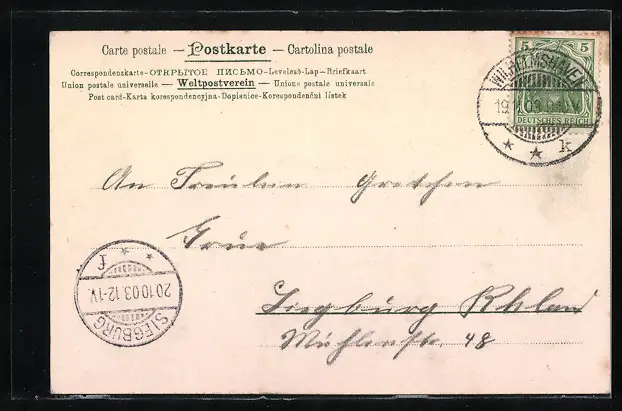 Carte postale — Postkarte — Cartolina postale
Correspondenzkarte - ОТКРЫТОЕ ПИСЬМО - Levelező-Lap - Briefkaart
Union postale universelle — Weltpostverein — Unione postale universale
Post card - Karta korespondencyjna - Dopisnice - Korespondenční lístek
5 5
DEUTSCHES REICH
WILHELMSHAVEN
k
An Fräulein Gretchen
Grüe
Siegburg Rhland
Mühlenstr. 48
SIEGBURG
20.10.03.12-1V.
f